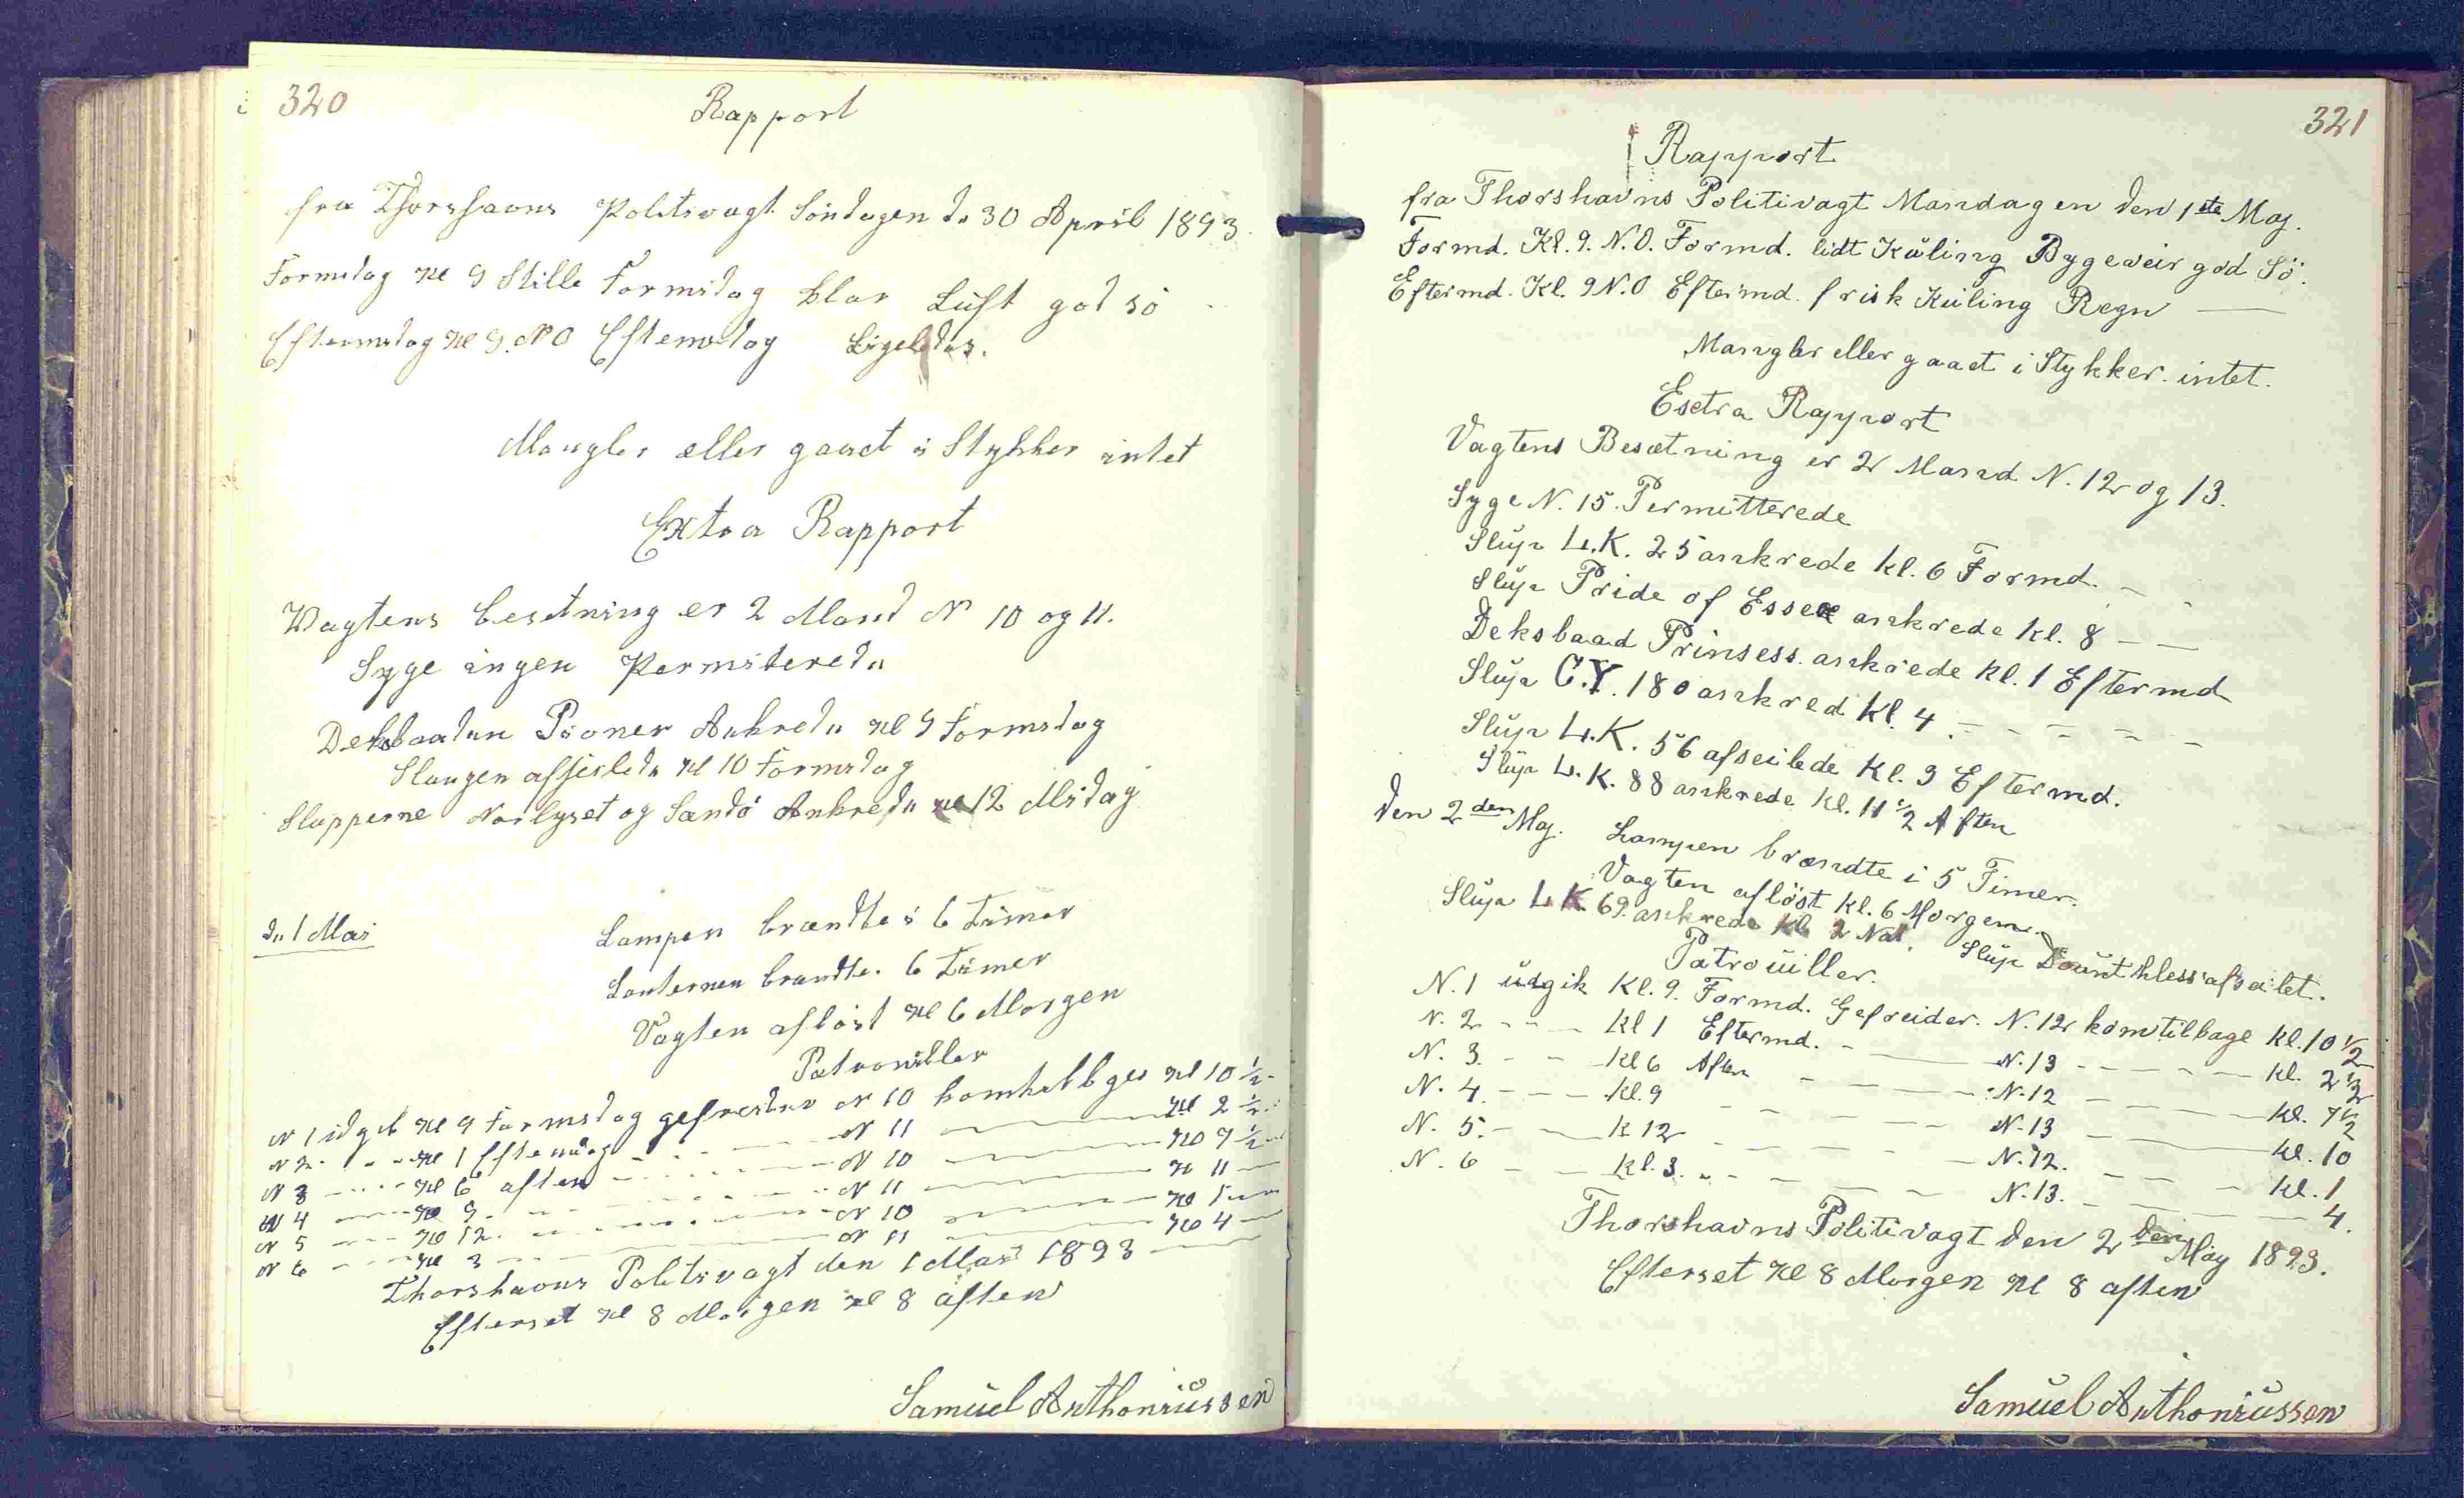 320
Rapport
fra Thorshavns Politivagt Söndagen d. 30 April 1893.
Formidag Kl 9 Stille Formidag klar Luft god sö
Eftermidag Kl 9. NO Eftemidag Ligeledes.
Mangler eller gaaet i Stykker intet
Extra Rapport
Wagtens besetning er 2 Mand N 10 og 11.
Syge ingen Permiterede
Deksbaaden Pioner Ankrede Kl 9 Formidag
Slangen afseilede Kl 10 Formidag
Slupperne Norlyset og Sandö Ankrede Kl 12 Midag
d. 1 Mai
Lampen brændte i 6 Timer
Lanternen brændte. 6 Timer
Vagten aflöst Kl 6 Morgen
Patrouiller
N 1 idgik Kl 9 Formidag gefreider N 10 komtilbge Kl 10 1/2
N 2 - - - Kl 1 Eftemidag - - - N 11 - Kl 2 1/2
N 3 - - - Kl 6 aften - - - N 10 - Kl 7 1/2
N 4 - - - Kl 9 - - - N 11 - Kl 11 -
N 5 - - - Kl 12 - - - N 10 - Kl 1 -
N 6 - - - Kl 3 - - - N 11 - Kl 4 -
Thorshavns Politivagt den 1 Mai 1893
Efterset Kl 8 Morgen Kl 8 aften
Samuel Anthoniussen
321
Rapport
fra Thorshavns Politivagt Mandagen den 1ste Maj.
Formd. Kl. 9. N.O. Formd. lidt Küling Bygeveir god Sö.
Eftermd. Kl. 9 N.O Eftermd. frisk Küling Regn —
Mangler eller gaaet i Stykker. intet.
Esctra Rapport
Vagtens Besætning er 2 Mand N. 12 og 13.
Syge N. 15. Permitterede
Slup L.K. 25 ankrede kl. 6 Formd. - -
Slup Pride of Essex ankrede kl. 8 - -
Deksbaad Prinsess. ankrede kl. 1 Eftermd
Slup C.Y. 180 ankred kl. 4 - - - - -
Slup L.K. 56 afseilede kl. 3 Eftermd.
Slup L.K. 88 ankrede kl. 11 1/2 Aften
den 2den Maj. Lampen brændte i 5 Timer.
Vagten aflöst kl. 6 Morgen.
Slup L.K. 69. ankrede kl. 2 Nat. Slup Dounthless afseilet.
Patrouiller.
N. 1 udgik kl. 9. Formd. Gefreider. N. 12 kom tilbage kl. 10 1/2
N. 2 - - - kl 1 Eftermd. - — N. 13 - - - - kl. 2 1/2
N. 3. - - kl 6 Aften - - - N. 12 - - - kl. 7 1/2
N. 4 - - - kl. 9 - - - N. 13 - - kl. 10
N. 5. - — k 12 - - - N. 12. - - - kl. 1
N. 6 - - kl. 3. - - - - N. 13. - - - 4.
Thorshavns Politivagt den 2den Maj 1893.
Efterset Kl 8 Morgen Kl 8 aften
Samuel Anthoniussen